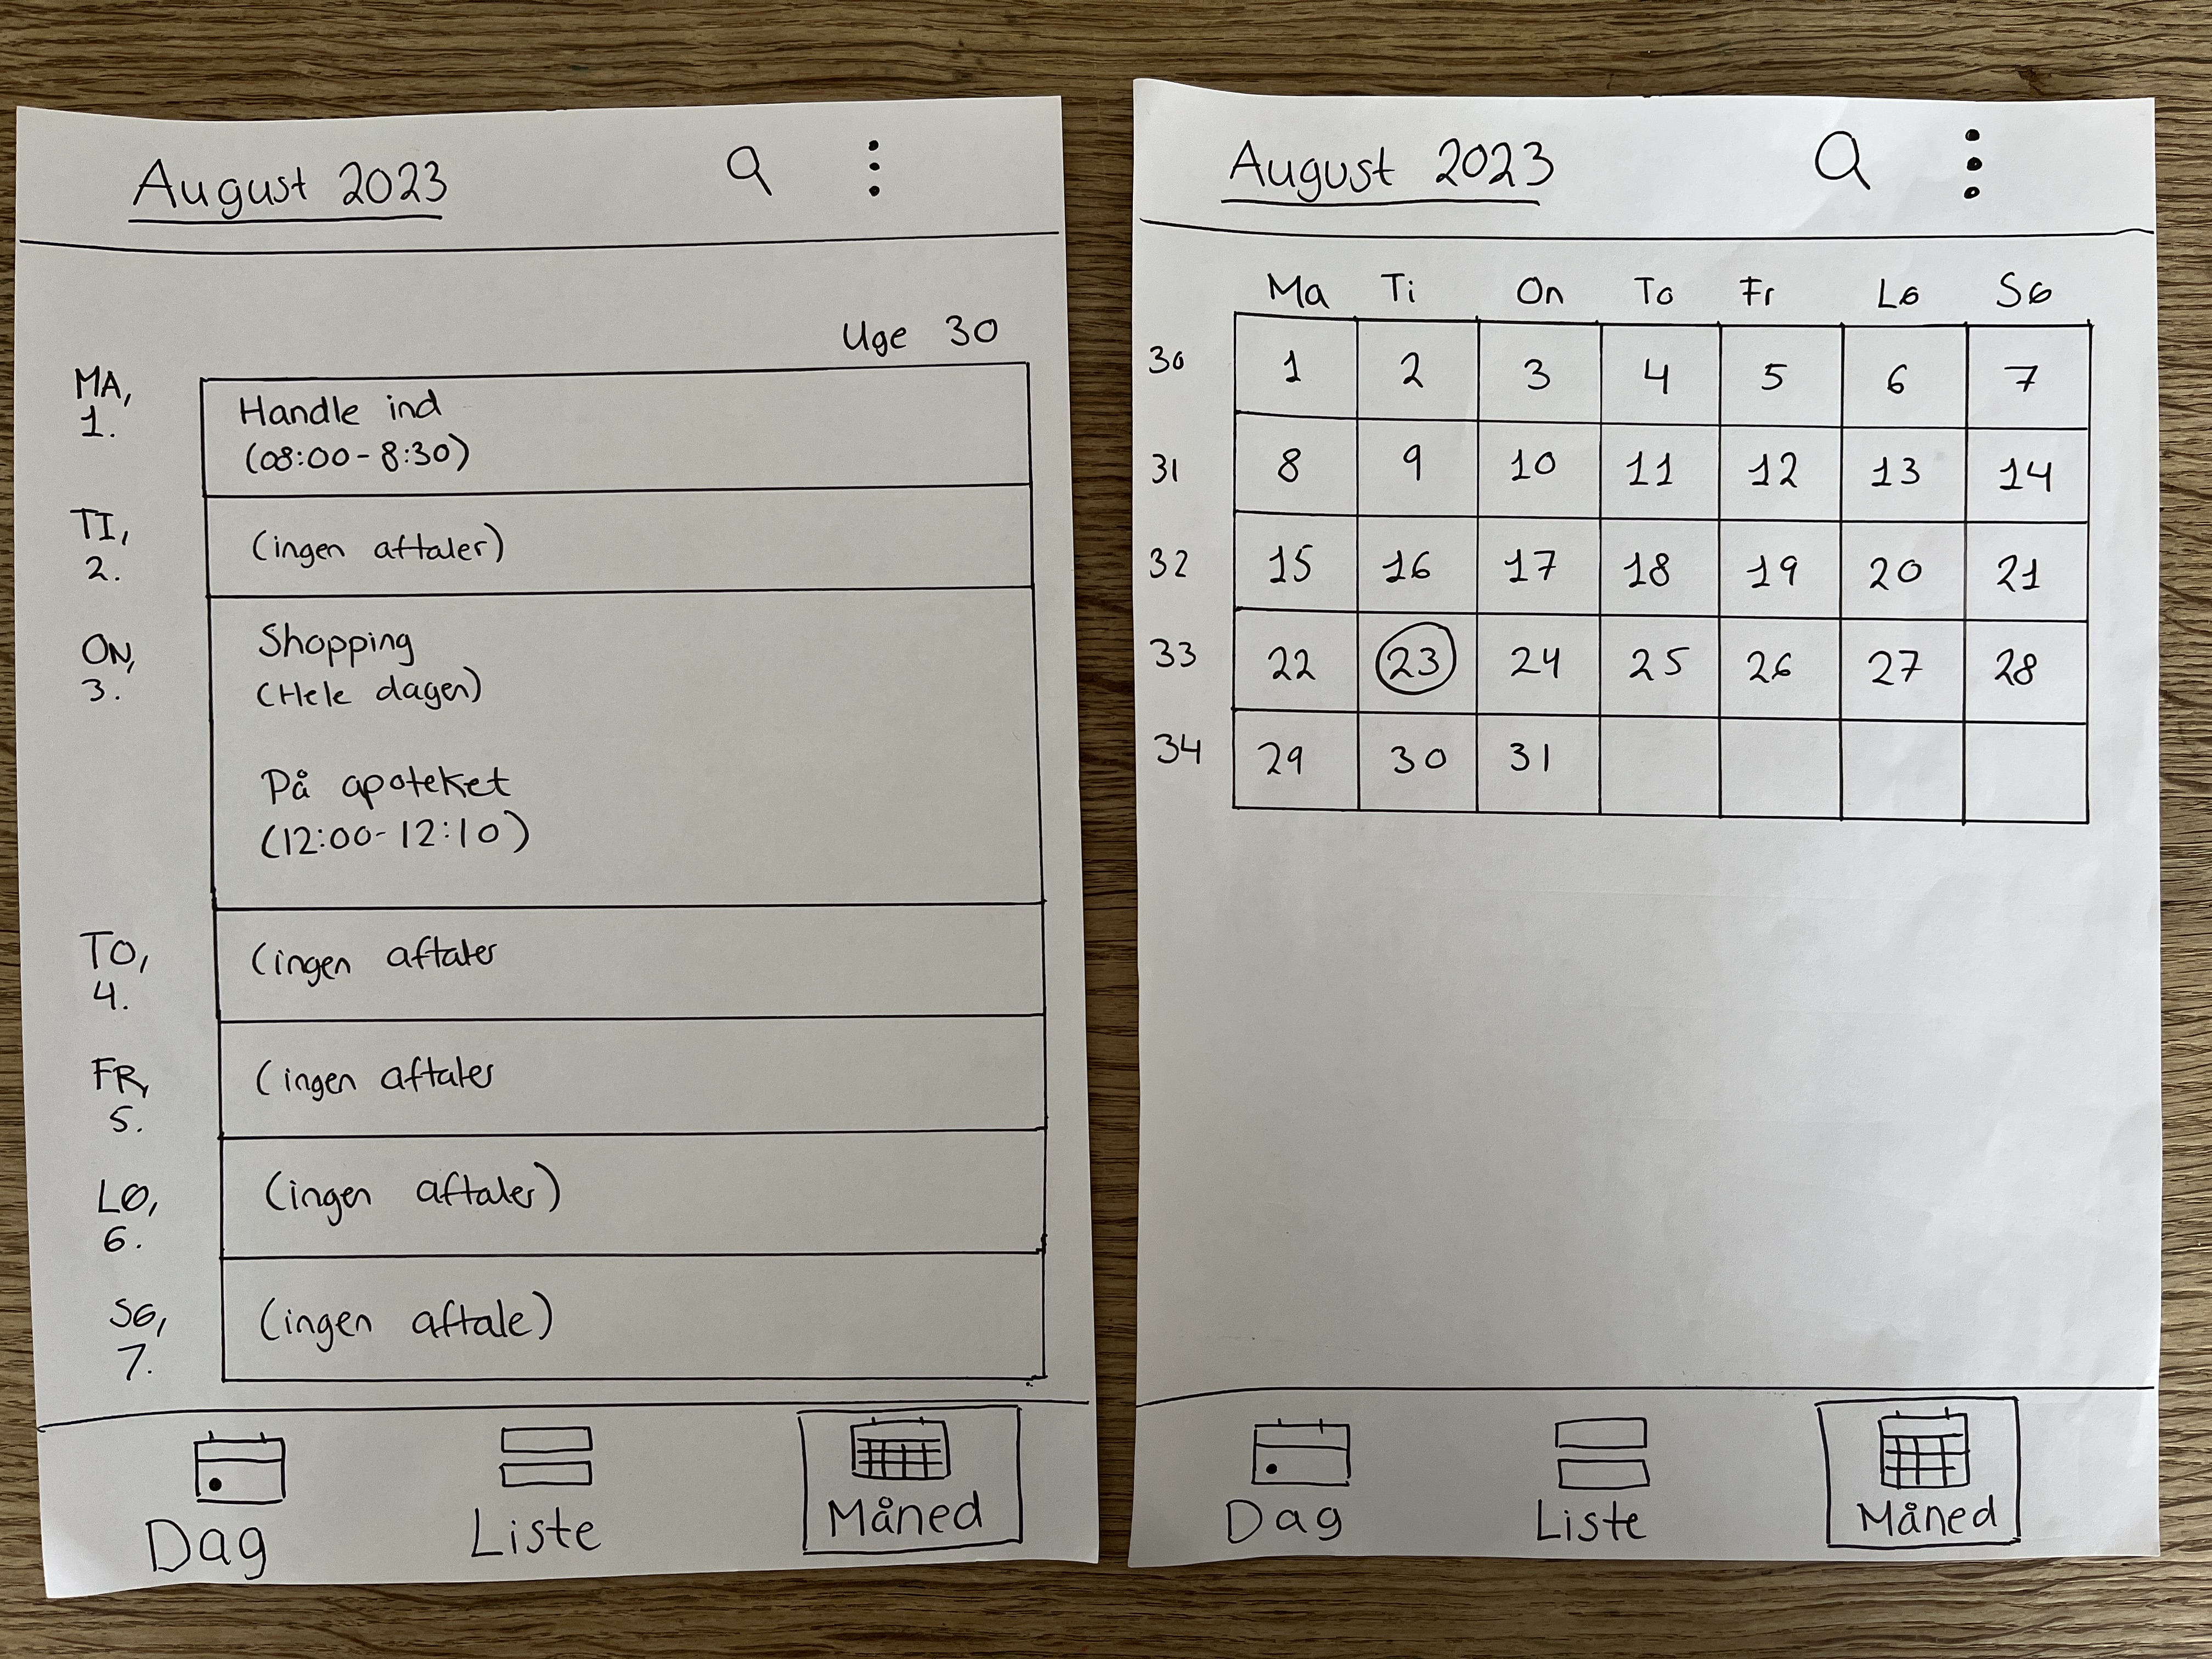 August 2023
Uge 30
MA,
1.
Handle ind
(08:00-8:30)
TI,
2.
(ingen aftaler)
ON,
3.
Shopping
(Hele dagen)
På apoteket
(12:00-12:10)
TO,
4.
(ingen aftaler
FR,
5.
(ingen aftaler
LØ,
6.
(ingen aftaler)
SØ,
7.
(ingen aftale)
Dag Liste Måned
August 2023
Ma Ti On To Fr Lø Sø
30 1 2 3 4 5 6 7
31 8 9 10 11 12 13 14
32 15 16 17 18 19 20 21
33 22 23 24 25 26 27 28
34 29 30 31
Dag Liste Måned